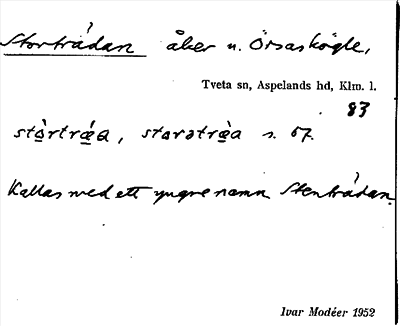 Storträdan åker u. Örsaskögle,
Tveta sn, Aspelands hd, Klm. l.
83
stòrtrǽa, storatrèa s. 67.
Kallas med ett yngre namn Stenträdan.
Ivar Modéer 1952